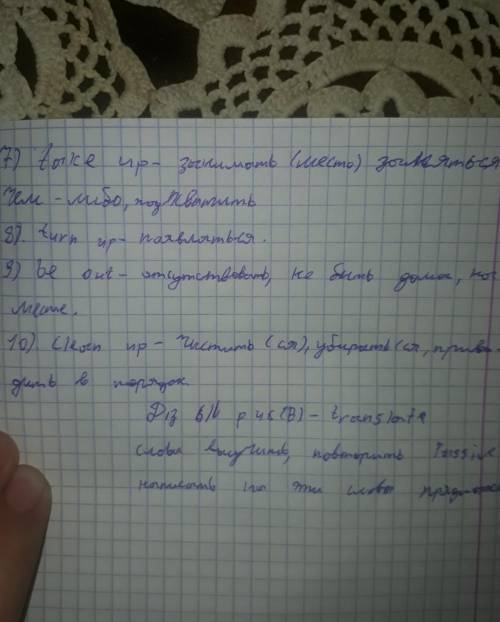 7) take up - занимать (место) заняться
чем-либо, подхватить
8) turn up - появляться.
9) be out - отсутствовать, не быть дома, на
месте.
10) Clean up - чистить (ся), убирать (ся, приво-
дить в порядок.
Д/з в/у p 46 (B) - translate
слова выучить, повторить Passive
написать на эти слова предложе